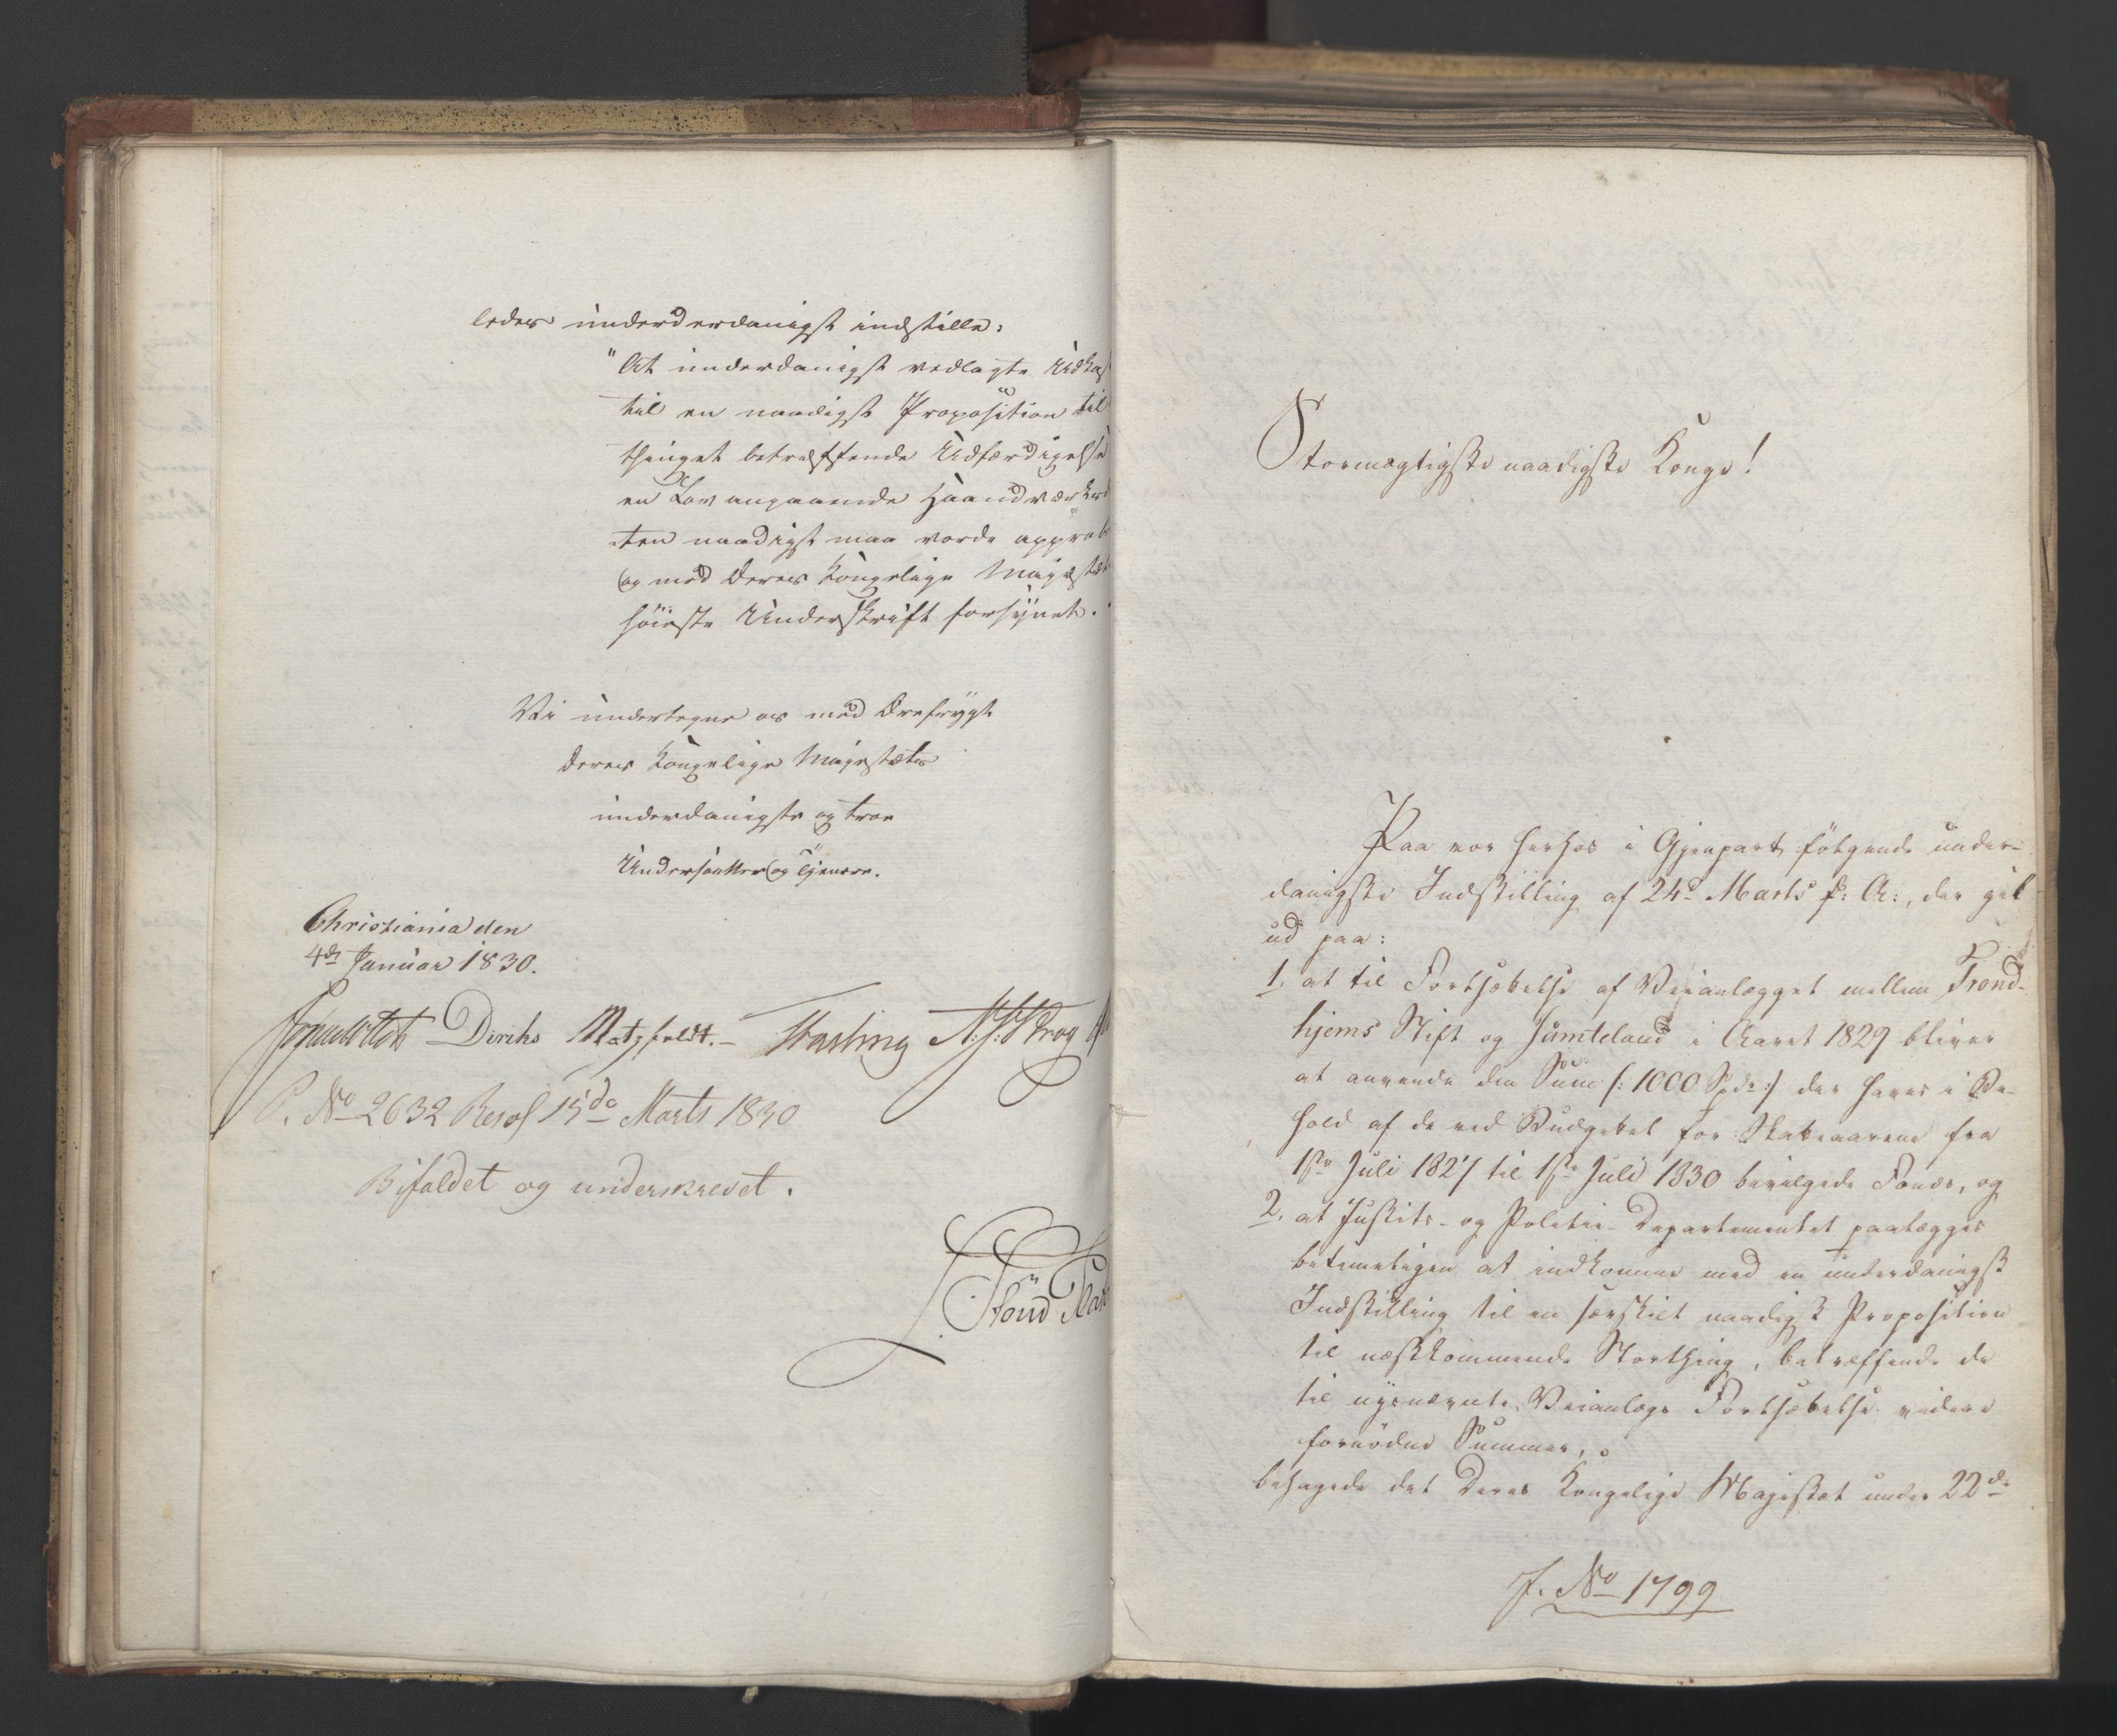 ledes underderdanigst indstille:
"At underdanigst vedlagte Udkas
til en naadigst Proposition til
thinget betræffende Udfærdigelse
en Lov angaaende Haandværksd
ten naadigst maa vorde approb
og med Deres Kongelige Majestæt
höieste Underskrift forsynet.
Vi undertegne os med Ærefrygt
Deres Kongelige Majestæts
underdanigste og troe
Undersaatter og Tjenere.
Christiania den
4de Januar 1830.
Diriks Motzfeldt.- Fasting
P. No 2632 Resol 15de Marts 1830
Bifaldet og underskrevet.
Paa vor herhos i Gjenpart fölgende under-
Stormægtigste naadigste Konge!
danigste Indstilling af 24d Marts f: A:, der gik
ud paa:
1. at til Fortsættelse af Veianlægget mellem Trond-
hjems Stift og Jämteland i Aaret 1829 bliver
at anvende den Sum (: 1000 Spd:) der haves i Be-
hold af de ved Budgettet for Skatteaarene fra
1ste Juli 1827 til 1ste Juli 1830 bevilgede Fonds, og
2. at Justits- og Politie-Departementet paalægges
betimeligen at indkomme med en underdanigst
Indstilling til en særskilt naadigst Proposition
til næstkommende Storthing, betræffende de
til nysnævnte Veianlægs Fortsættelse videre
fornödne Summer,
behagede det Deres Kongelige Majestæt under 22de
J. No 1799